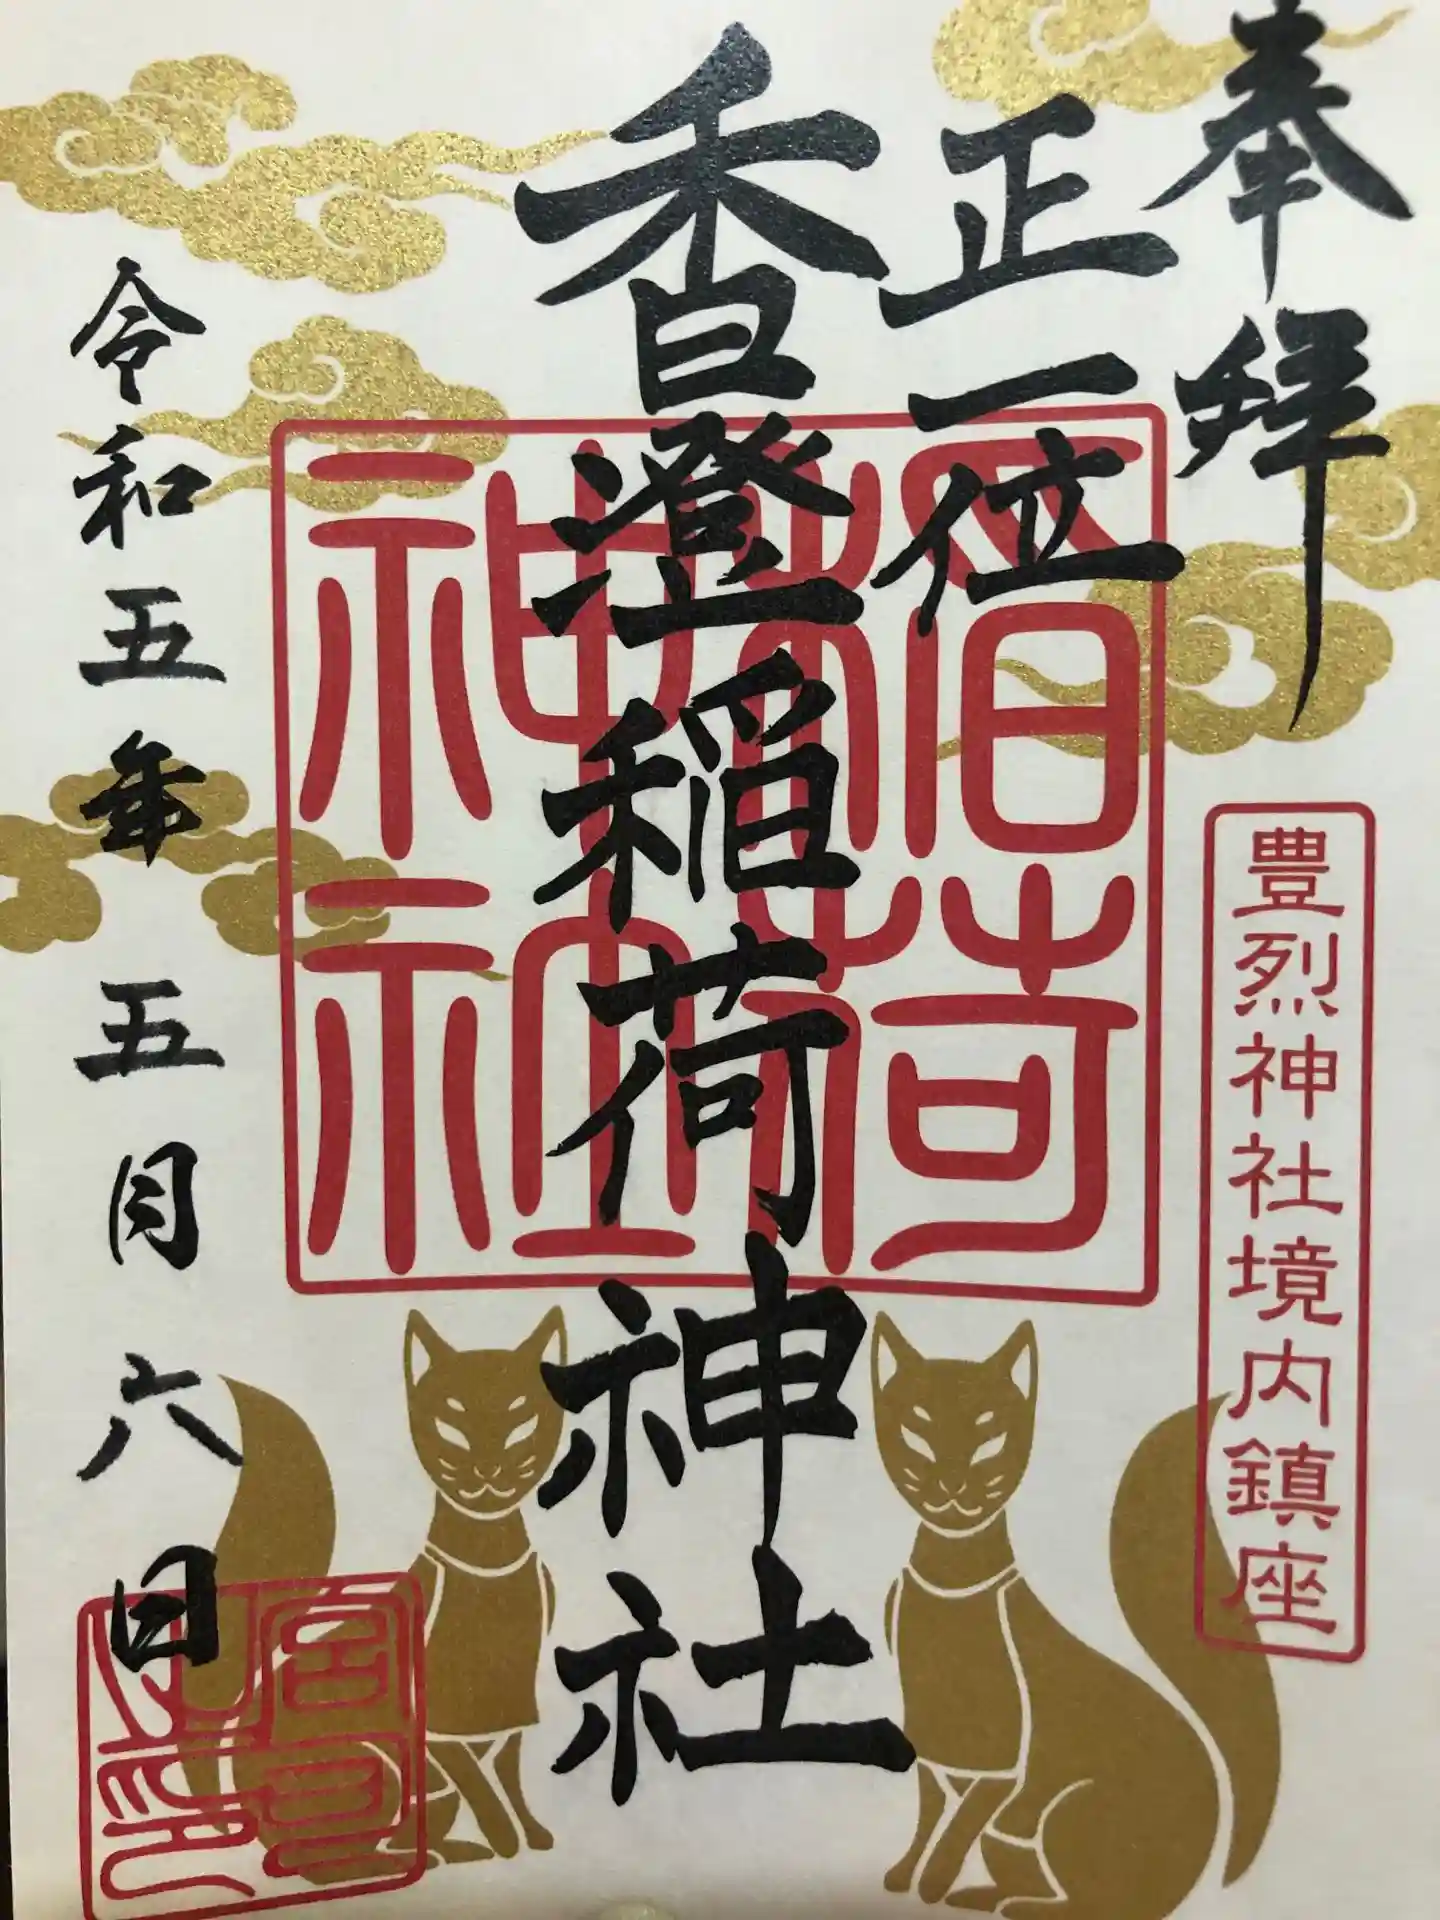 奉拝
豊烈神社境内鎮座
正一位
香澄稲荷神社
稲荷
神社
令和五年 五月 六日
宮司
之印